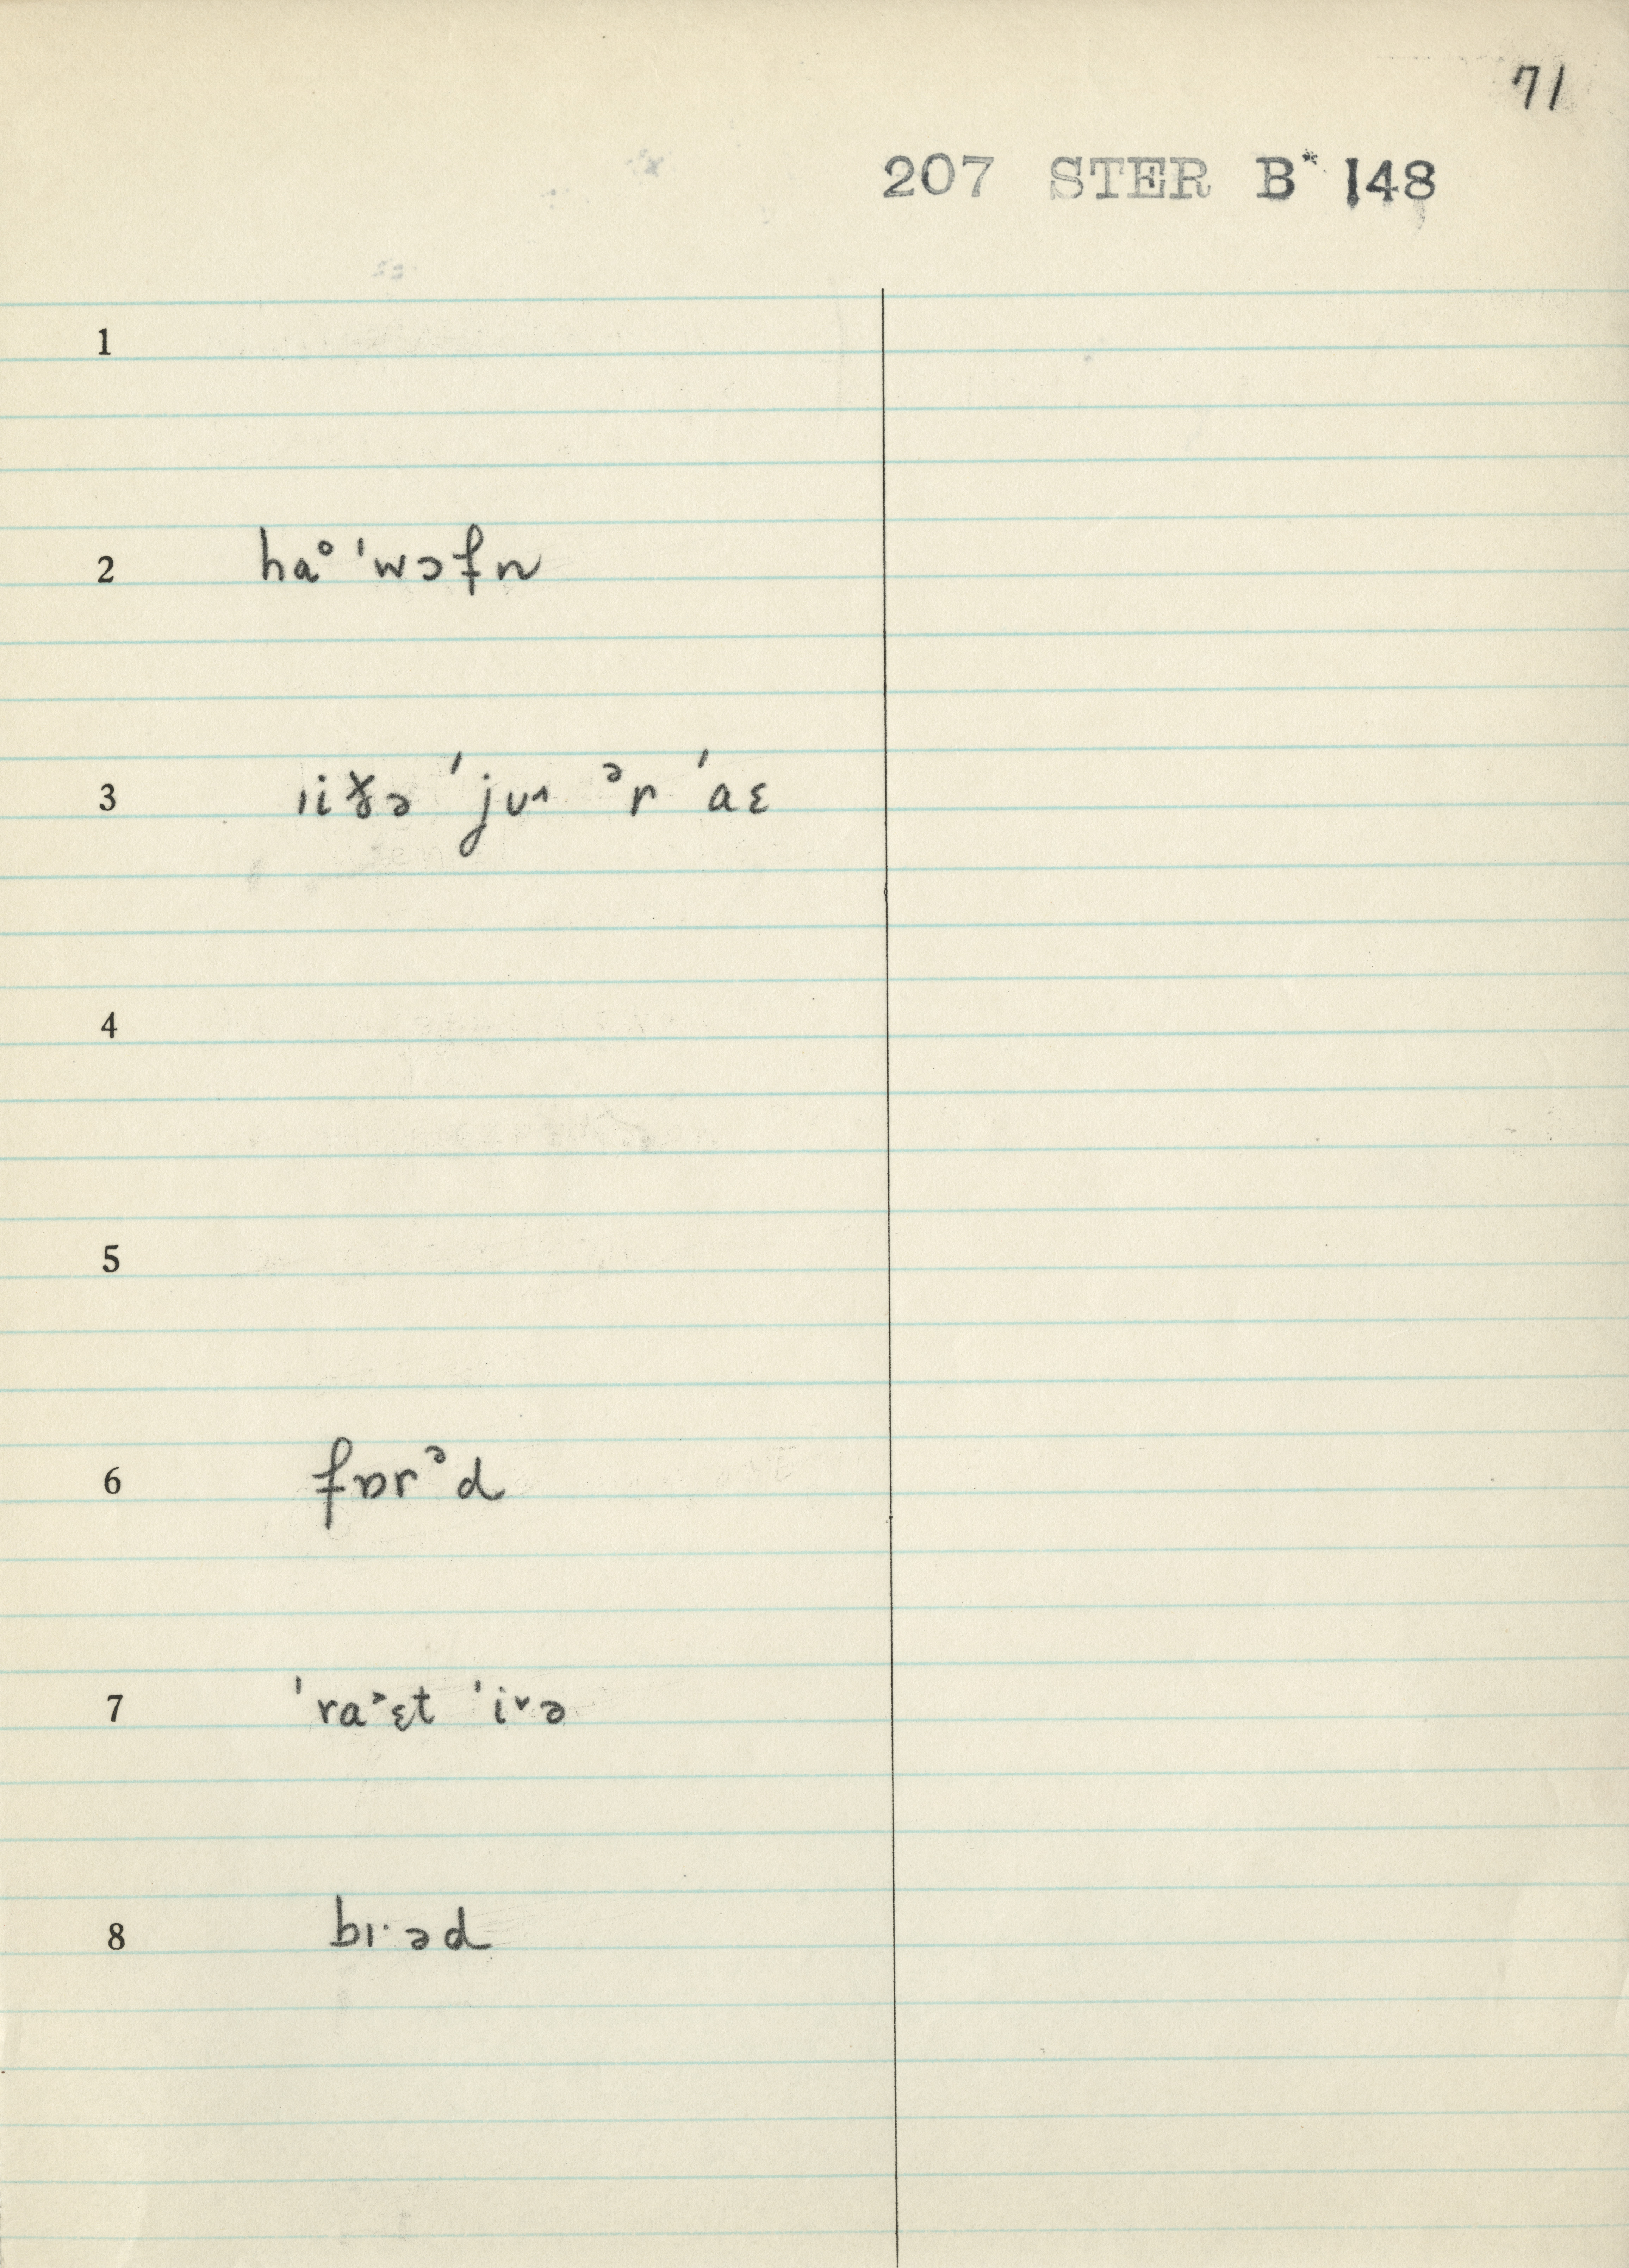 71
207 STER B* 148
1
2 haᵒ ˈwɔfn
3 ɪiðə ˈjuʌ ᵊr ˈaɛ
4
5
6 fɒrᵊd
7 ˈraᵊɛt ˈiᵛə
8 bɪ·əd